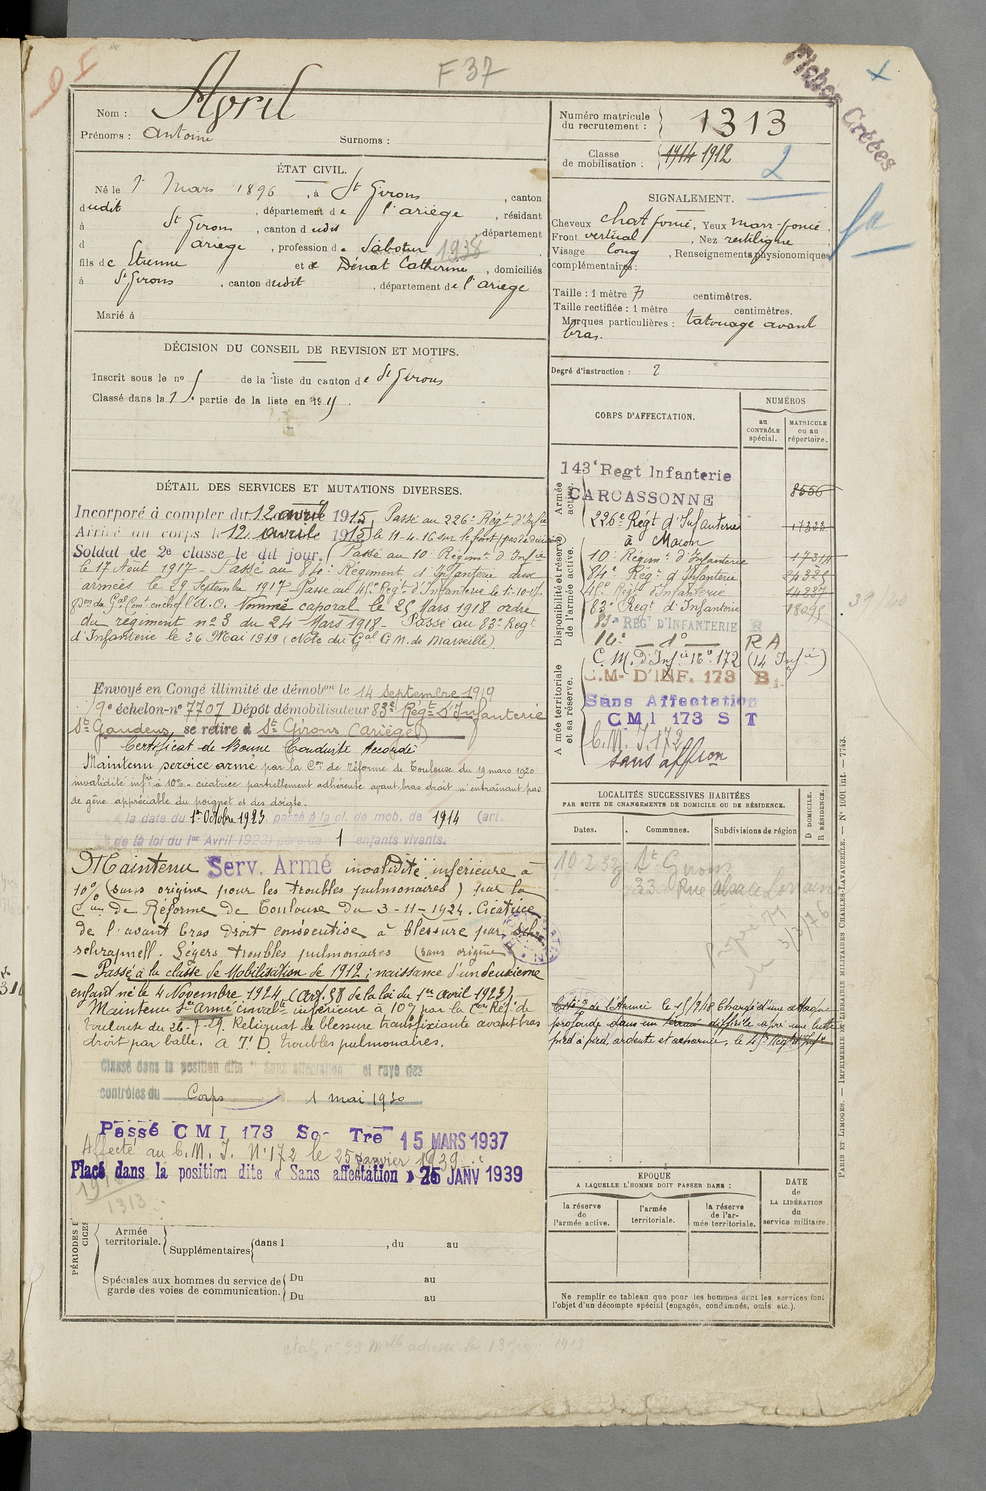 F 37
Fiches Créées
Nom : Avril
Prénoms : Antoine Surnoms :
Numéro matricule du recrutement : 1313
Classe de mobilisation : 1914 1912
2
ÉTAT CIVIL.
Né le 1er Mars 1896, à St Girons, canton
dudit, département de l'ariège, résidant
à St Girons, canton dudit, département
d ariege, profession de Sabotier 1938
fils de Etienne et de Dénat Catherine, domiciliés
à St Girons, canton dudit, département de l'ariege
Marié à
SIGNALEMENT.
Cheveux chat foncé, Yeux marr foncé.
Front vertical, Nez rectiligne
Visage long, Renseignements physionomiques
complémentaires :
Taille : 1 mètre 71 centimètres.
Taille rectifiée : 1 mètre centimètres.
Marques particulières : tatouage avant
bras.
Degré d'instruction : 2
DÉCISION DU CONSEIL DE REVISION ET MOTIFS.
Inscrit sous le no 5 de la liste du canton de St Girons
Classé dans la 1re partie de la liste en 1915.
DÉTAIL DES SERVICES ET MUTATIONS DIVERSES.
Incorporé à compter du 12 avril 1915, Passé au 226e Régt d'Infie
Arrivé au corps le 12 avril 1915 le 11-4-16 sur le front
Soldat de 2e classe le dit jour. Passé au 10e Régimt d'Infie
le 17 Août 1917 - Passé au 84e Régiment d'Infanterie aux
armées le 29 Septembre 1917 - Passé au 45e Regt d'Infanterie le 1-10-17.
Nommé caporal le 25 Mars 1918 ordre
du régiment no 3 du 24 Mars 1918 - Passé au 83e Regt
d'Infanterie le 26 Mai 1919 (Note du Gal G.M. de Marseille).
Envoyé en Congé illimité de démobon le 14 Septembre 1919
9e échelon - no 7707 Dépôt démobilisateur 83e Regt d'Infanterie
St Gaudens, se retire à St Girons (Ariège)
Certificat de Bonne Conduite Accordé
Maintenu service armé par la Con de réforme de Toulouse du 19 mars 1920
invalidité infre à 10%. cicatrice partiellement adhérente avant bras droit n'entraînant pas
de gêne appréciable du poignet et des doigts.
à la date du 1er Octobre 1923 passé à la cl. de mob. de 1914 (art.
de la loi du 1er Avril 1923) père de 1 enfants vivants.
Maintenu Serv. Armé invalidité inférieure à
10% (sans origine pour les troubles pulmonaires) par la
Con de Réforme de Toulouse du 3-11-1924. Cicatrice
de l'avant bras droit consécutive à blessure par
schrapnell. Légers troubles pulmonaires (sans origine)
— Passé à la classe de Mobilisation de 1912 : naissance d'un deuxième
enfant né le 4 Novembre 1924 (Art. 58 de la loi du 1er avril 1923).
Maintenu Sce Armé invalté inférieure à 10% par la Con Réf. de
Toulouse du 26-7-29. Reliquat de blessure transfixiante avant bras
droit par balle. troubles pulmonaires.
Classé dans la position dite "Sans affectation" et rayé des
contrôles du Corps 1 mai 1930
Passé CMI 173 So- Tre 15 MARS 1937
Affecté au C.M.I. No 172 le 25 Janvier 1939
Placé dans la position dite « Sans affectation » 25 JANV 1939
1313
CORPS D'AFFECTATION.
NUMÉROS
au CONTRÔLE spécial.
MATRICULE ou au répertoire.
Armée active.
143e Regt Infanterie
CARCASSONNE 8556
226e Régt d'Infanterie
à Macon
Disponibilité et réserve de l'armée active.
10e Régimt d'Infanterie
84e Régt d'Infanterie 24325
45e Régt d'Infanterie
83e Regt d'Infanterie
83e REGt D'INFANTERIE
16e — do — RA
C.M. d'Infie 16e 172 (14 Infie)
Armée territoriale et sa réserve.
C.M. D'INF. 173 B.
Sans Affectation
CMI 173 ST
C.M.I. 172
sans affon
39/40
LOCALITÉS SUCCESSIVES HABITÉES
PAR SUITE DE CHANGEMENTS DE DOMICILE OU DE RÉSIDENCE.
Dates. Communes. Subdivisions de région
D DOMICILE. R RÉSIDENCE.
St Girons
33 Rue Alsace Lorraine
Cité de l'Armée le 15/9/18 Chargé d'une attaque
profonde dans un terrain difficile après une lutte
pied à pied, ardente et acharnée, le 45e Regt d'Infie
ÉPOQUE
A LAQUELLE L'HOMME DOIT PASSER DANS :
la réserve de l'armée active.
l'armée territoriale.
la réserve de l'armée territoriale.
DATE de LA LIBÉRATION du service militaire.
Ne remplir ce tableau que pour les hommes dont les services font
l'objet d'un décompte spécial (engagés, condamnés, omis etc.).
Armée territoriale. Supplémentaires dans l , du au
Spéciales aux hommes du service de garde des voies de communication. Du au
Du au
PARIS ET LIMOGES. — IMPRIMERIE ET LIBRAIRIE MILITAIRES CHARLES-LAVAUZELLE. — No 1001 int. — 7743.